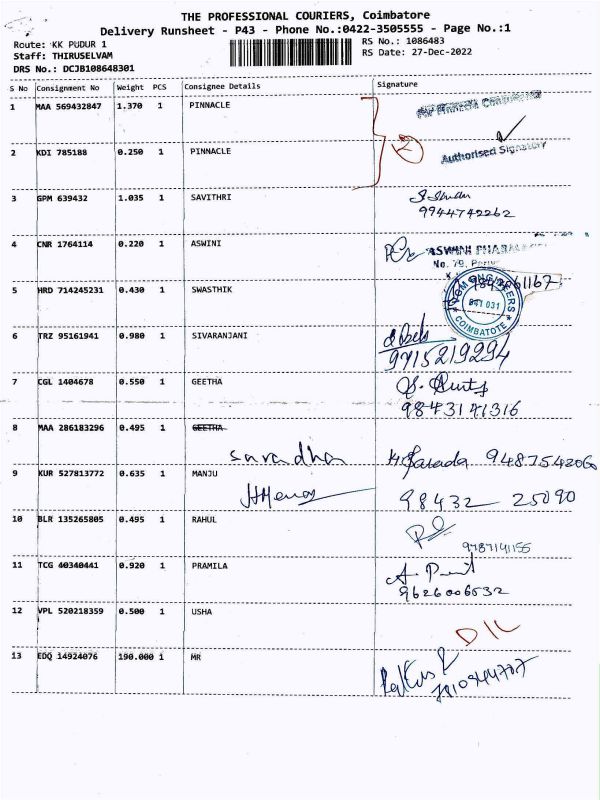 THE PROFESSIONAL COURIERS, Coimbatore
Delivery Runsheet - P43 - Phone No.:0422-3505555 - Page No.:1
Route: KK PUDUR 1
RS No.: 1086483
Staff: THIRUSELVAM
RS Date: 27-Dec-2022
DRS No.: DCJB108648301
S No Consignment No Weight PCS Consignee Details Signature
1 MAA 569432847 1.370 1 PINNACLE
2 KDI 785188 0.250 1 PINNACLE 2 Authorised Signatory
3 GPM 639432 1.035 1 SAVITHRI
9944742262
4 CNR 1764114 0.220 1 ASWINI ASWINI
No. 79,
5 HRD 714245231 0.430 1 SWASTHIK
ENGINEERS
641 031
COIMBATOTE
6 TRZ 95161941 0.980 1 SIVARANJANI
9715219294
7 CGL 1404678 0.550 1 GEETHA
9843141316
8 MAA 286183296 0.495 1 GEETHA
saradha 9487542060
9 KUR 527813772 0.635 1 MANJU
98432 25090
10 BLR 135265805 0.495 1 RAHUL
9787141155
11 TCG 40340441 0.920 1 PRAMILA
9626006532
12 VPL 520218359 0.500 1 USHA
13 EDQ 14924076 190.000 1 MR